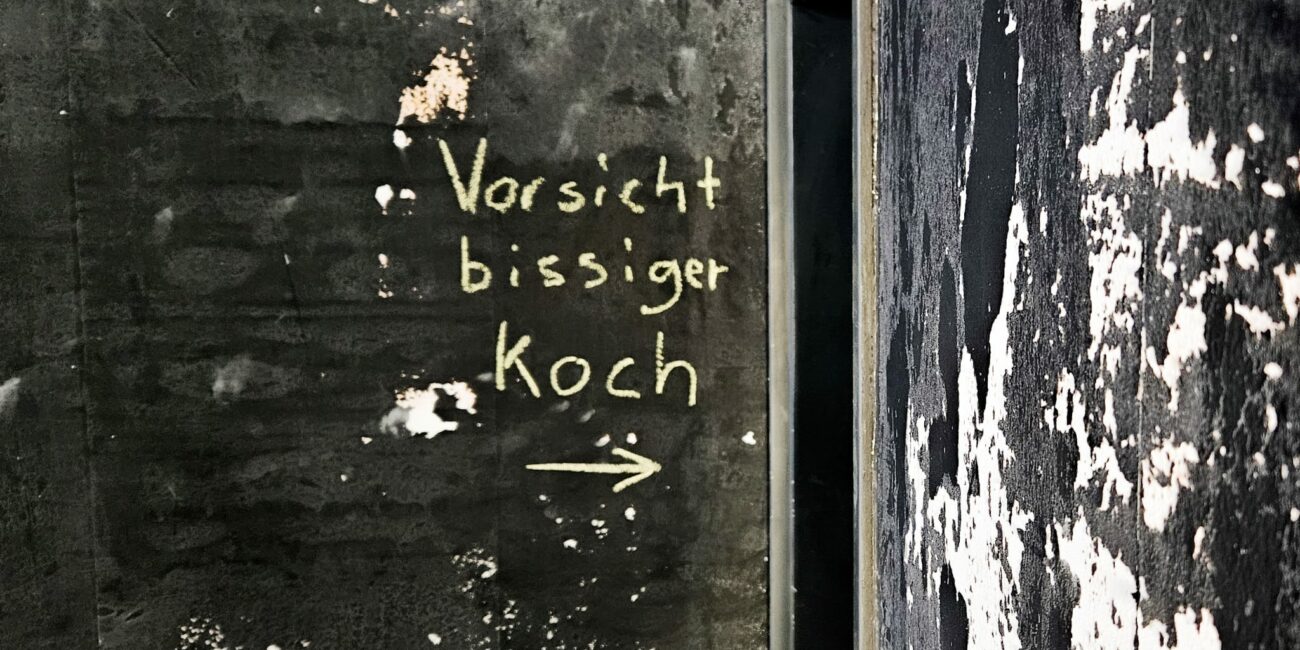 Vorsicht
bissiger
Koch
→